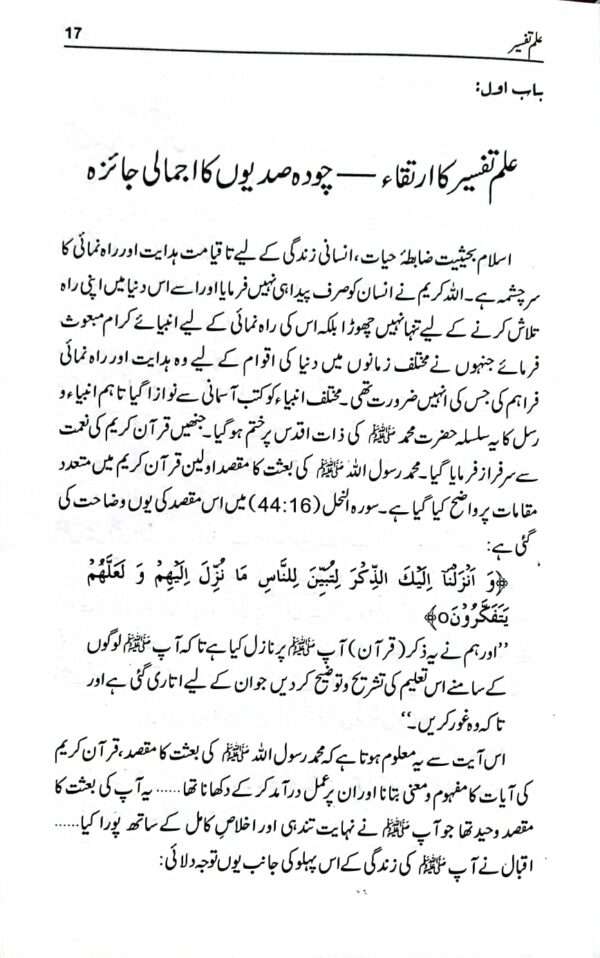 علم تفسیر 17
باب اول:
علم تفسیر کا ارتقاء — چودہ صدیوں کا اجمالی جائزہ
اسلام بحیثیت ضابطۂ حیات، انسانی زندگی کے لیے تا قیامت ہدایت اور راہ نمائی کا
سرچشمہ ہے۔ اللہ کریم نے انسان کو صرف پیدا ہی نہیں فرمایا اور اسے اس دنیا میں اپنی راہ
تلاش کرنے کے لیے تنہا نہیں چھوڑا بلکہ اس کی راہ نمائی کے لیے انبیائے کرام مبعوث
فرمائے جنہوں نے مختلف زمانوں میں دنیا کی اقوام کے لیے وہ ہدایت اور راہ نمائی
فراہم کی جس کی انہیں ضرورت تھی۔ مختلف انبیاء کو کتب آسمانی سے نوازا گیا تاہم انبیاء و
رسل کا یہ سلسلہ حضرت محمد ﷺ کی ذات اقدس پر ختم ہو گیا۔ جنھیں قرآن کریم کی نعمت
سے سرفراز فرمایا گیا۔ محمد رسول اللہ ﷺ کی بعثت کا مقصد اولین قرآن کریم میں متعدد
مقامات پر واضح کیا گیا ہے۔ سورہ النحل (44:16) میں اس مقصد کی یوں وضاحت کی
گئی ہے:
﴿وَ اَنْزَلْنَاۤ اِلَیْكَ الذِّكْرَ لِتُبَیِّنَ لِلنَّاسِ مَا نُزِّلَ اِلَیْهِمْ وَ لَعَلَّهُمْ
یَتَفَكَّرُوْنَo﴾
’’اور ہم نے یہ ذکر (قرآن) آپ ﷺ پر نازل کیا ہے تا کہ آپ ﷺ لوگوں
کے سامنے اس تعلیم کی تشریح و توضیح کر دیں جو ان کے لیے اتاری گئی ہے اور
تا کہ وہ غور کریں۔‘‘
اس آیت سے یہ معلوم ہوتا ہے کہ محمد رسول اللہ ﷺ کی بعثت کا مقصد، قرآن کریم
کی آیات کا مفہوم و معنی بتانا اور ان پر عمل درآمد کر کے دکھانا تھا ...... یہ آپ کی بعثت کا
مقصد وحید تھا جو آپ ﷺ نے نہایت تندہی اور اخلاصِ کامل کے ساتھ پورا کیا ......
اقبال نے آپ ﷺ کی زندگی کے اس پہلو کی جانب یوں توجہ دلائی: